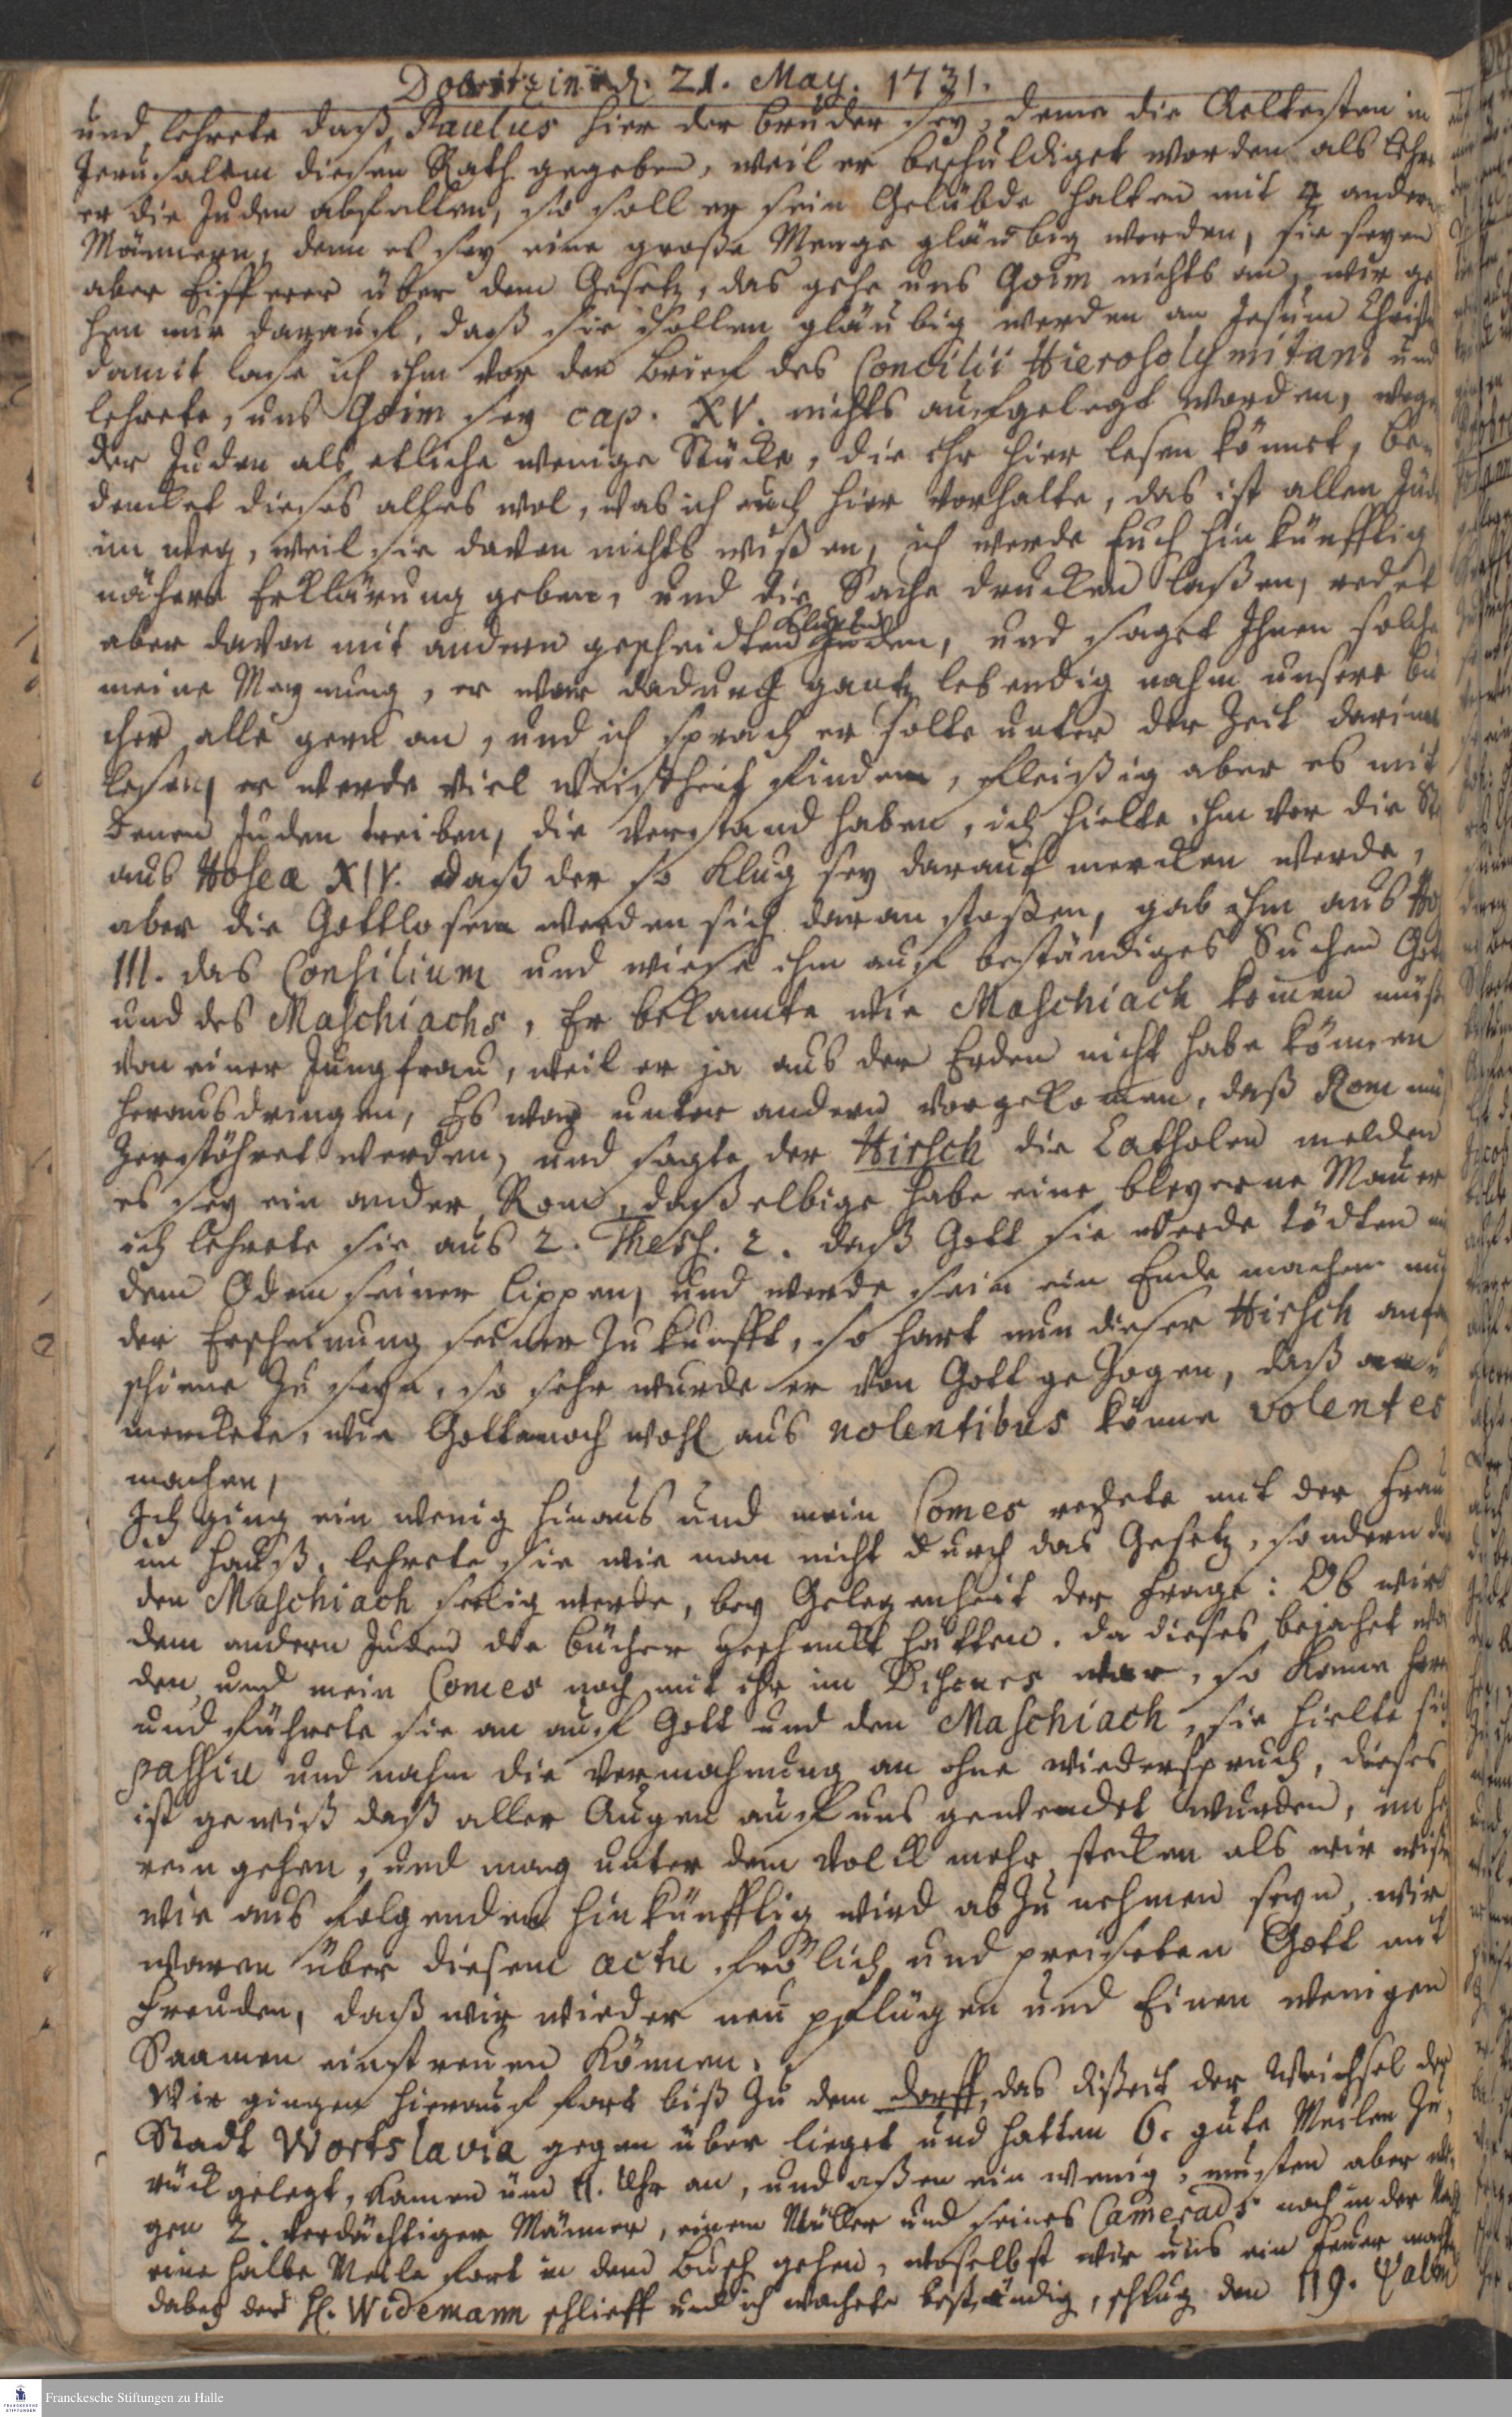 Dobrzin d. 21. May. 1731.
und lehrete daß Paulus hier der bruder sey, deme die Aeltesten in
Jerusalem diesen Rath gegeben, weil er beschuldiget worden als lehre
er die Juden abfallen, so soll er sein Gelübde halten mit 4 andern
Männern, denn es sey eine große Menge gläubig worden, sie seyen
aber Eifferer über dem Gesetz, das gehe uns Goim nichts an, wir ge
hen nur darauf, daß sie sollen gläubig werden an Jesum Christum
damit lase ich ihm vor den brief des Concilii Hierosolymitani und
lehrete, uns Goim sey cap. XV. nichts aufgelegt worden, wegen
der Juden als etliche wenige Stücke, die ihr hier lesen könnet, be-
dencket dieses alles wol, was ich euch hier vorhalte, das ist allen Juden
im weg, weil sie davon nichts wißen, ich werde Euch hinkünfftig
nähere Erklärung geben, und die Sache drucken laßen, redet
aber davon mit andern gescheidten klugen Juden, und saget Ihnen solche
meine Meynung, er war dadurch gantz lebendig nahm unsere bü
cher alle gern an, und ich sprach er solte unter der Zeit darinnen
lesen, er werde viel Weißheit finden, fleißig aber es mit
denen Juden treiben, die Verstand haben, ich hielte ihm vor die St
aus Hosea XIV. daß der so klug sey darauf mercken werde,
aber die Gottlosen werden sich daran stoßen, gab ihm aus Hos
III. das Consilium und wiese ihm auf beständiges Suchen Gott
und des Maschiachs, Er bekannte wie Maschiach kommen müße
von einer Jungfrau, weil er ja aus der Erden nicht habe können
herausdringen, Es war unter andern vorgekommen, daß Rom müß
zerstöhret werden, und sagte der Hirsch die Catholen melden
es sey ein ander Rom, daßelbige habe eine bleyerne Mauer
ich lehrete sie aus 2. Thess. 2. daß Gott sie werde tödten mit
dem Odem seiner Lippen, und werde sein ein Ende machen mit
der Erscheinung seiner Zukunfft, so hart nun dieser Hirsch anfangs
schiene zu seyn, so sehr wurde er von Gott gezogen, daß man
merckete, wie Gott noch wohl aus nolentibus könne volentes
machen,
Ich ging ein wenig hinaus und mein Comes redete mit der Frau
im Hauß, lehrete sie wie man nicht durch das Gesetz, sondern durch
den Maschiach seelig werde, bey Gelegenheit der Frage: Ob wir
dem andern Juden die bücher geschenckt hätten. da dieses bejahet wor
den, und mein Comes noch mit ihr im war, so kame
und führete sie an auf Gott und den Maschiach, sie hielte sich
passive und nahm die Vermahnung an ohne wiederspruch, dieses
ist gewiß daß aller Augen auf uns gewendet wurden, im he
rein gehen, und mag unter dem Volck mehr stecken als wir wißen
wie aus folgenden hinkünfftig wird abzunehmen seyn, wir
waren über diesem actu frölich und preiseten Gott mit
Freuden, daß wir wieder neu pflügen und Einen wenigen
Saamen einstreuen können.
Wir gingen hierauf fort biß zu dem Dorff, das dißeit der Weichsel der
Stadt Wortslavia gegen über lieget und hatten 6. gute Meilen zu-
rückgelegt, kamen um Uhr an, und aßen ein wenig, musten aber we-
gen 2. verdächtiger Männer, einem Müller und seines Camerads noch in der Nacht
eine halbe Meile fort in den busch gehen, woselbst wir uns ein Feuer machten
dabey der H. Widemann schlieff und ich wachete beständig, schlug den 119. Psalm
Franckesche Stiftungen zu Halle